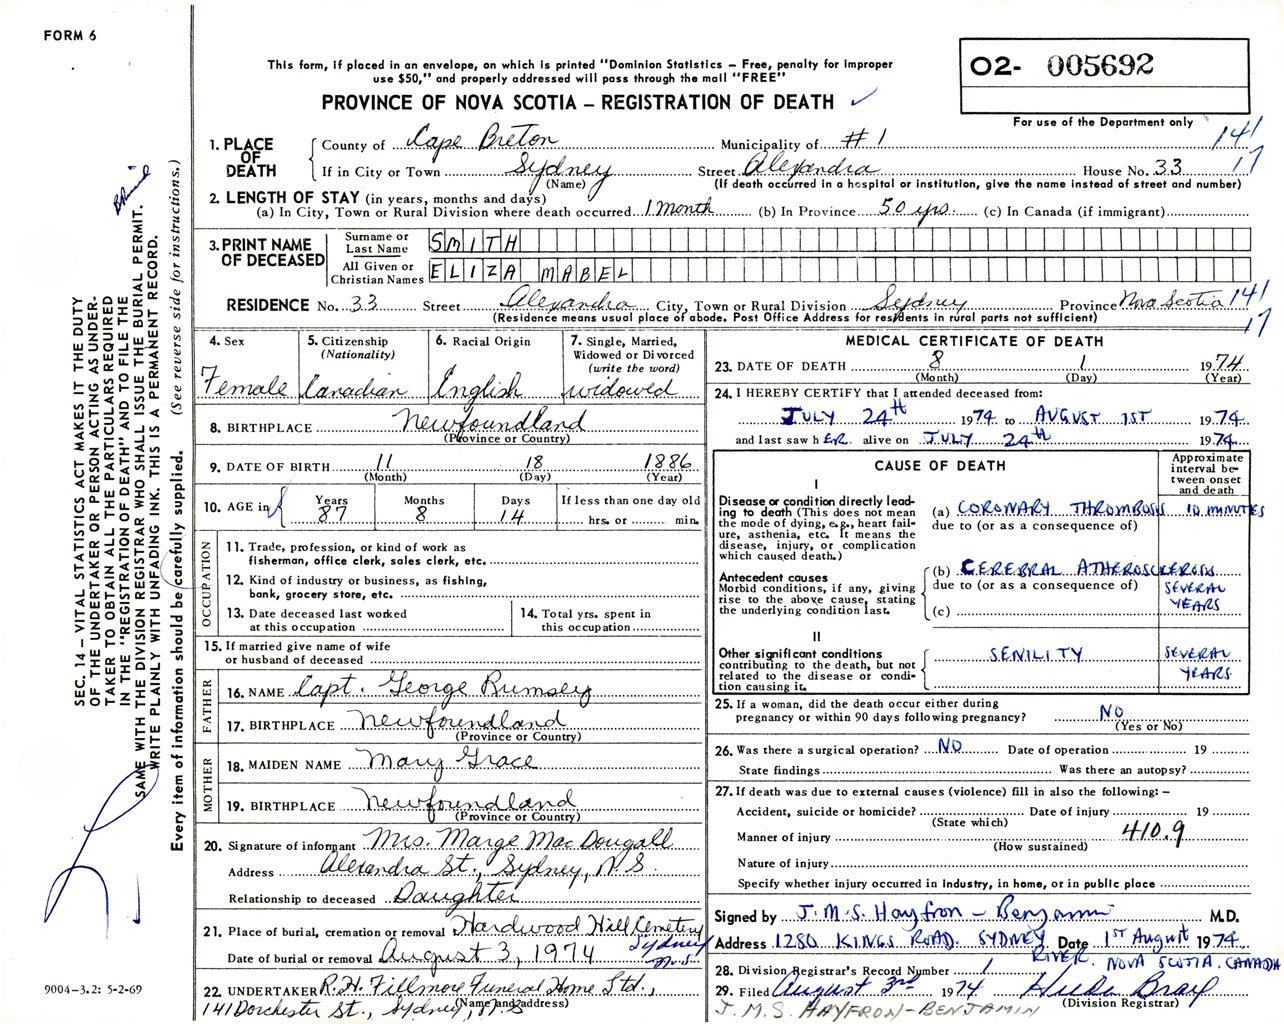 FORM 6
This form, if placed in an envelope, on which is printed "Dominion Statistics – Free, penalty for improper
use $50," and properly addressed will pass through the mail "FREE"
PROVINCE OF NOVA SCOTIA – REGISTRATION OF DEATH ✓
O2- 005692
For use of the Department only
141
17
1. PLACE OF DEATH
County of Cape Breton Municipality of #1
If in City or Town Sydney Street Alexandra House No. 33
(Name) (If death occurred in a hospital or institution, give the name instead of street and number)
2. LENGTH OF STAY (in years, months and days)
(a) In City, Town or Rural Division where death occurred 1 month (b) In Province 50 yrs. (c) In Canada (if immigrant)
3. PRINT NAME OF DECEASED
Surname or Last Name SMITH
All Given or Christian Names ELIZA MABEL
RESIDENCE No. 33 Street Alexandra City, Town or Rural Division Sydney Province Nova Scotia 141
(Residence means usual place of abode. Post Office Address for residents in rural parts not sufficient) 17
4. Sex
Female
5. Citizenship
(Nationality)
Canadian
6. Racial Origin
English
7. Single, Married,
Widowed or Divorced
(write the word)
widowed
8. BIRTHPLACE Newfoundland
(Province or Country)
9. DATE OF BIRTH 11 18 1886
(Month) (Day) (Year)
10. AGE in
Years Months Days If less than one day old
87 8 14 hrs. or min.
OCCUPATION
11. Trade, profession, or kind of work as
fisherman, office clerk, sales clerk, etc.
12. Kind of industry or business, as fishing,
bank, grocery store, etc.
13. Date deceased last worked
at this occupation
14. Total yrs. spent in
this occupation
15. If married give name of wife
or husband of deceased
FATHER
16. NAME Capt. George Rumsey
17. BIRTHPLACE Newfoundland
(Province or Country)
MOTHER
18. MAIDEN NAME Mary Grace
19. BIRTHPLACE Newfoundland
(Province or Country)
20. Signature of informant Mrs. Marge MacDougall
Address Alexandra St., Sydney, N.S.
Relationship to deceased Daughter
21. Place of burial, cremation or removal Hardwood Hill Cemetery
Sydney N.S.
Date of burial or removal August 3, 1974
22. UNDERTAKER R.H. Fillmore Funeral Home Ltd.,
(Name and address)
141 Dorchester St., Sydney, N.S
MEDICAL CERTIFICATE OF DEATH
23. DATE OF DEATH 8 1 1974
(Month) (Day) (Year)
24. I HEREBY CERTIFY that I attended deceased from:
JULY 24th 1974 to AUGUST 1ST 1974
and last saw hER alive on JULY 24th 1974
CAUSE OF DEATH
Approximate
interval be-
tween onset
and death
I
Disease or condition directly lead-
ing to death (This does not mean
the mode of dying, e.g., heart fail-
ure, asthenia, etc. It means the
disease, injury, or complication
which caused death.)
(a) CORONARY THROMBOSIS 10 MINUTES
due to (or as a consequence of)
Antecedent causes
Morbid conditions, if any, giving
rise to the above cause, stating
the underlying condition last.
(b) CEREBRAL ATHEROSCLEROSIS
due to (or as a consequence of) SEVERAL YEARS
(c)
II
Other significant conditions
contributing to the death, but not
related to the disease or condi-
tion causing it.
SENILITY SEVERAL YEARS
25. If a woman, did the death occur either during
pregnancy or within 90 days following pregnancy? NO
(Yes or No)
26. Was there a surgical operation? NO Date of operation 19
State findings Was there an autopsy?
27. If death was due to external causes (violence) fill in also the following: –
Accident, suicide or homicide? Date of injury 19
(State which)
Manner of injury 410.9
(How sustained)
Nature of injury
Specify whether injury occurred in industry, in home, or in public place
Signed by J.M.S. Hayfron-Benjamin M.D.
Address 1280 KINGS ROAD. SYDNEY Date 1ST August 1974
RIVER. NOVA SCOTIA. CANADA
28. Division Registrar's Record Number 1
29. Filed August 3rd 1974 Hilda Bray
(Division Registrar)
J.M.S. HAYFRON-BENJAMIN
SEC. 14 – VITAL STATISTICS ACT MAKES IT THE DUTY
OF THE UNDERTAKER OR PERSON ACTING AS UNDER-
TAKER TO OBTAIN ALL THE PARTICULARS REQUIRED
IN THE "REGISTRATION OF DEATH" AND TO FILE THE
SAME WITH THE DIVISION REGISTRAR WHO SHALL ISSUE THE BURIAL PERMIT.
WRITE PLAINLY WITH UNFADING INK. THIS IS A PERMANENT RECORD.
Every item of information should be carefully supplied. (See reverse side for instructions.)
9004-3.2: 5-2-69